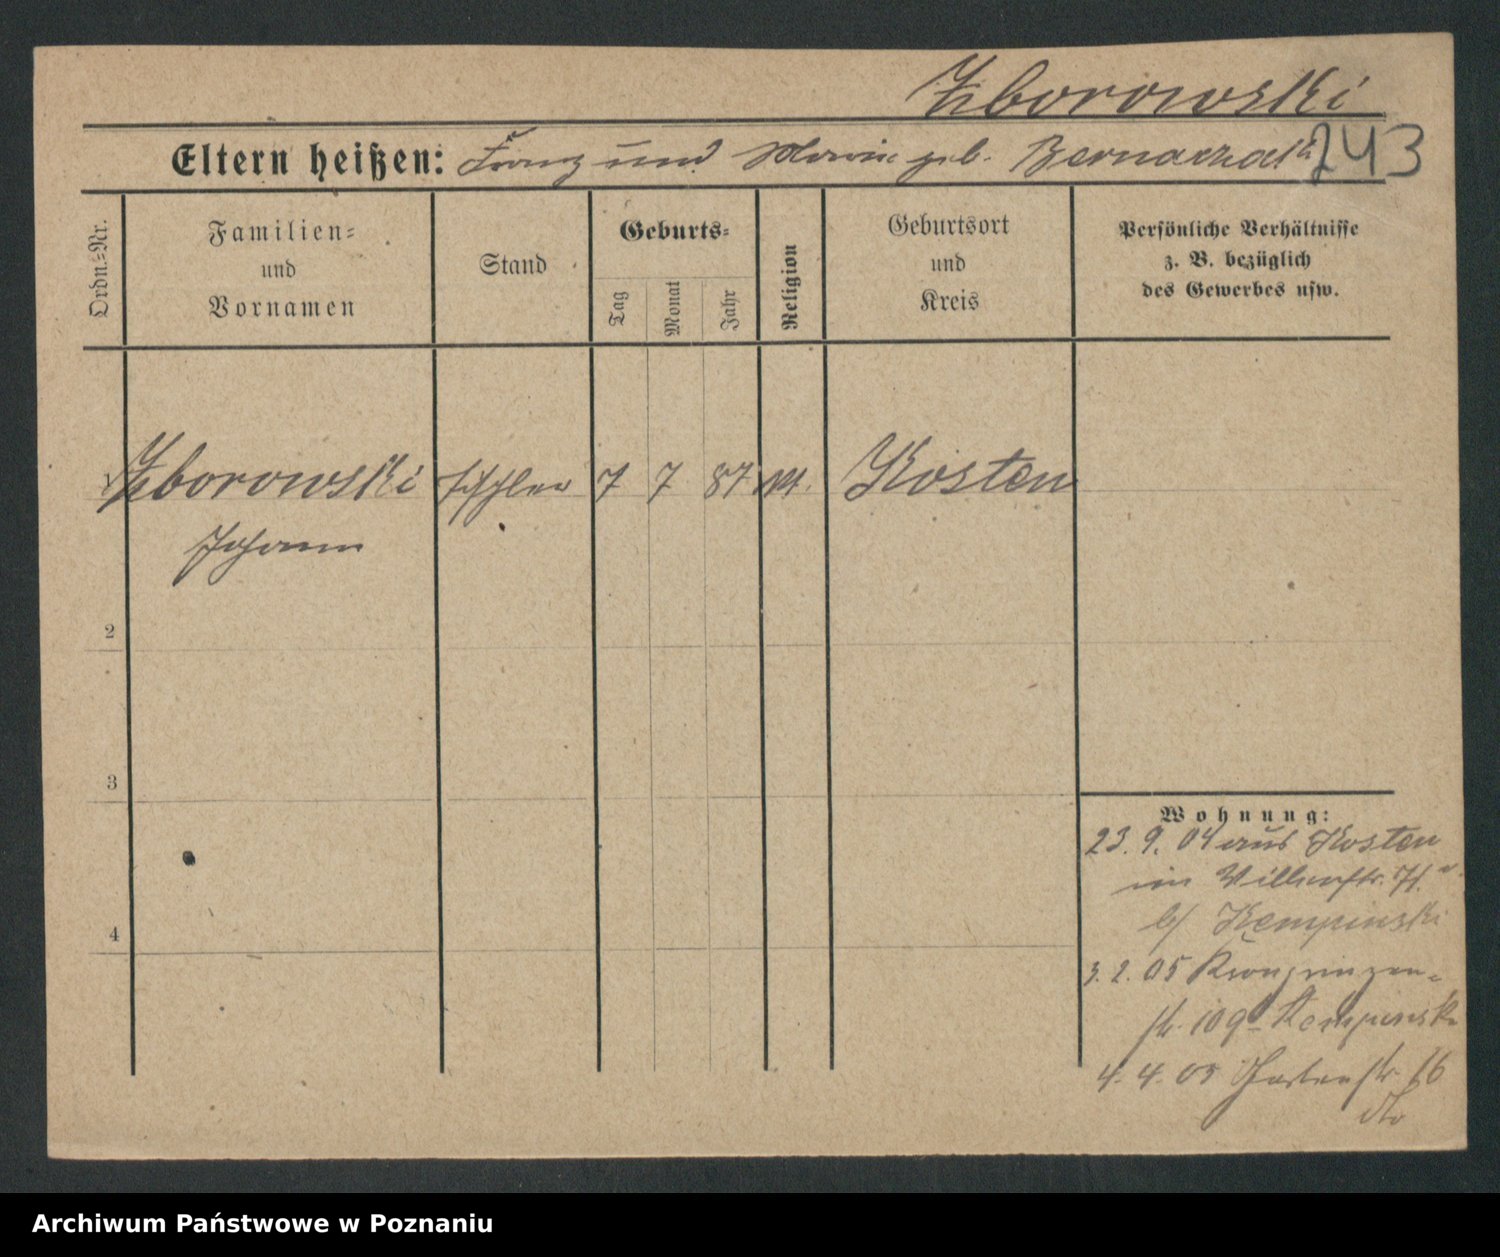 Zborowski
Eltern heißen: Franz und Marie geb. Bernaczack
243
Ordn.=Nr.
Familien=
und
Vornamen
Stand
Geburts=
Tag
Monat
Jahr
Religion
Geburtsort
und
Kreis
Persönliche Verhältnisse
z. B. bezüglich
des Gewerbes usw.
1 Zborowski Tischler 7 7 87 Kosten
Johann
2
3
4
Wohnung:
23. 9. 04 aus Kosten
b/ Kempinski
3. 2. 05 Kronprinzen=
str. 109 Kempinski
4. 4. 05 Gartenstr 16
dto
Archiwum Państwowe w Poznaniu